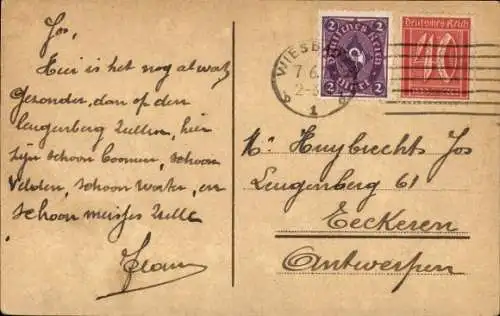 Jos,
Hier is het nog al wat
Gezonder, dan op den
Leugenberg zullen, hier
zijn schoon boomen, schoon
velden, schoon, en
schoon meisjes zulle
Frans
WIESB
7 6
2-3
b 1 d
2 2
Deutsches Reich
2 Mark 2
Deutsches Reich
40
Mr Huybrechts Jos
Leugenberg 61
Eeckeren
Antwerpen